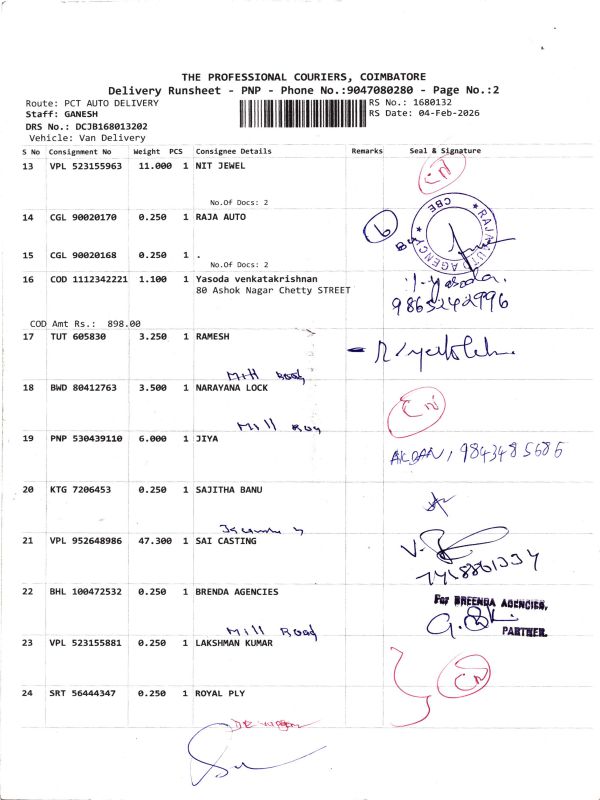 THE PROFESSIONAL COURIERS, COIMBATORE
Delivery Runsheet - PNP - Phone No.:9047080280 - Page No.:2
Route: PCT AUTO DELIVERY
RS No.: 1680132
Staff: GANESH
RS Date: 04-Feb-2026
DRS No.: DCJB168013202
Vehicle: Van Delivery
S No Consignment No Weight PCS Consignee Details Remarks Seal & Signature
13 VPL 523155963 11.000 1 NIT JEWEL
CN
No.Of Docs: 2
14 CGL 90020170 0.250 1 RAJA AUTO
6
RAJ AUTO AGENCY
CBE
15 CGL 90020168 0.250 1 .
No.Of Docs: 2
16 COD 1112342221 1.100 1 Yasoda venkatakrishnan
80 Ashok Nagar Chetty STREET
Y. Yasoda.
9865242996
COD Amt Rs.: 898.00
17 TUT 605830 3.250 1 RAMESH
Mill Road
18 BWD 80412763 3.500 1 NARAYANA LOCK
CN
Mill
19 PNP 530439110 6.000 1 JIYA
9843485685
20 KTG 7206453 0.250 1 SAJITHA BANU
21 VPL 952648986 47.300 1 SAI CASTING
22 BHL 100472532 0.250 1 BRENDA AGENCIES
For BREENDA AGENCIES,
PARTNER.
Mill Road
23 VPL 523155881 0.250 1 LAKSHMAN KUMAR
CN
24 SRT 56444347 0.250 1 ROYAL PLY